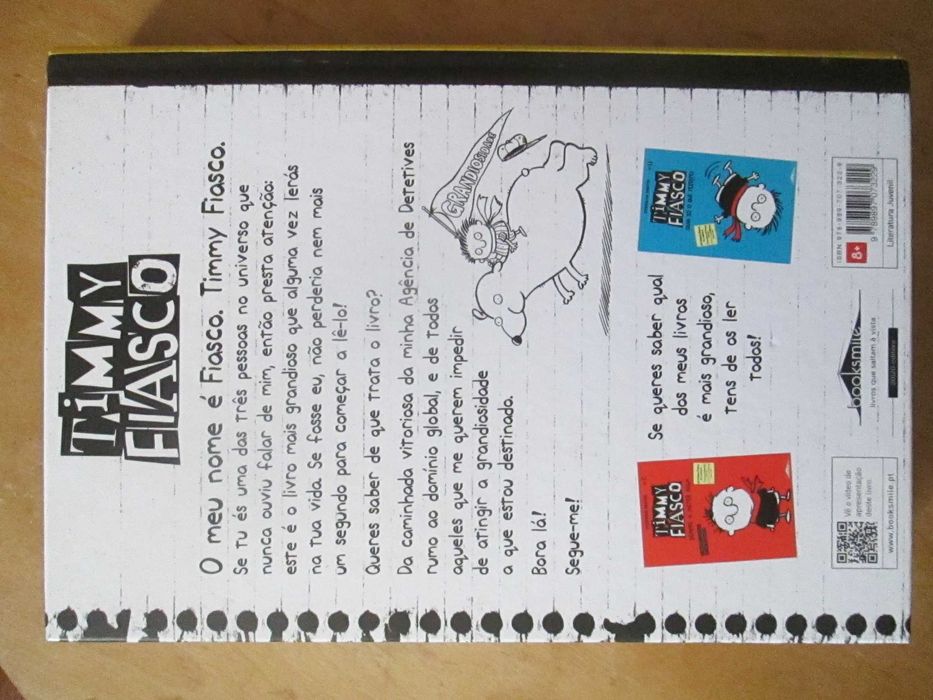 TiMMY
FIASCO
O meu nome é Fiasco. Timmy Fiasco.
Se tu és uma das três pessoas no universo que
nunca ouviu falar de mim, então presta atenção:
este é o livro mais grandioso que alguma vez lerás
na tua vida. Se fosse eu, não perderia nem mais
um segundo para começar a lê-lo!
Queres saber de que trata o livro?
Da caminhada vitoriosa da minha Agência de Detetives
rumo ao domínio global, e de todos
aqueles que me querem impedir
de atingir a grandiosidade
a que estou destinado.
Bora lá!
Segue-me!
GRANDIOSIDADE
TiMMY
FIASCO
Se queres saber qual
dos meus livros
é mais grandioso,
tens de os ler
todos!
TiMMY
FIASCO
Vê o vídeo de
apresentação
deste livro.
www.booksmile.pt
booksmile
livros que saltam à vista
2020 editora
8+
Literatura Juvenil